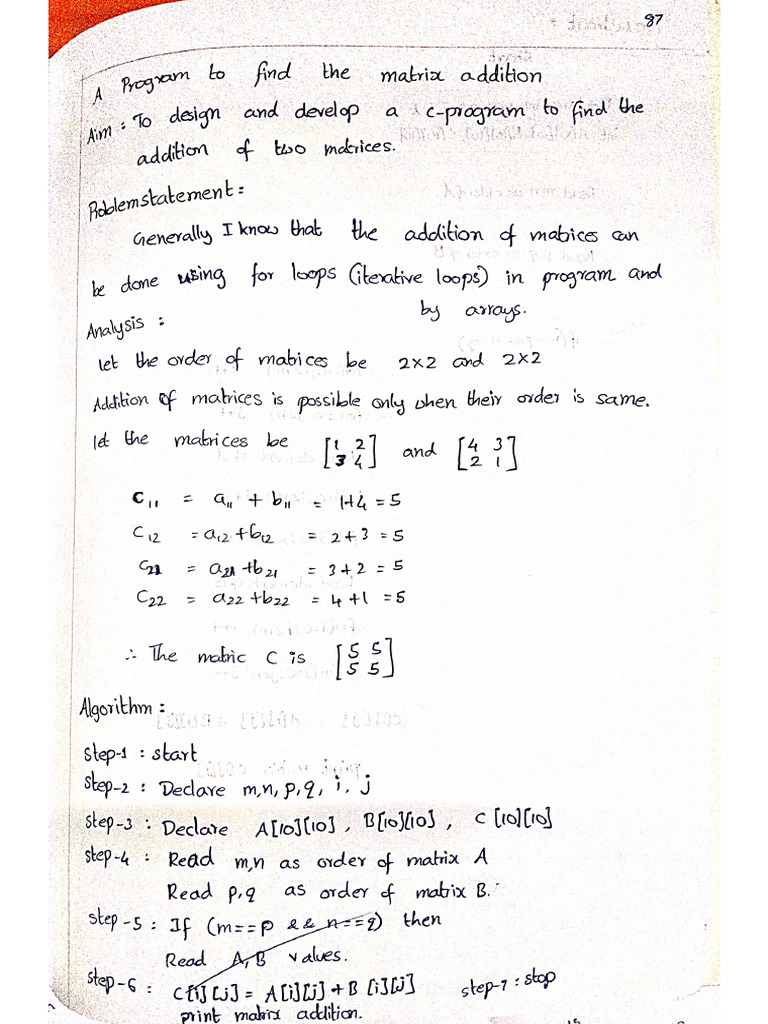 87
A Program to find the matrix addition
Aim : To design and develop a c-program to find the
addition of two matrices.
Problem statement :
Generally I know that the addition of matrices can
be done using for loops (iterative loops) in program and
by arrays.
Analysis :
let the order of matrices be 2×2 and 2×2
Addition of matrices is possible only when their order is same.
let the matrices be [1 2 and [4 3
3 4] 2 1]
C11 = a11 + b11 = 1+4 = 5
C12 = a12 + b12 = 2+3 = 5
C21 = a21 + b21 = 3+2 = 5
C22 = a22 + b22 = 4+1 = 5
∴ The matric C is [5 5
5 5]
Algorithm :
Step-1 : start
Step-2 : Declare m,n, p,q, i, j
Step-3 : Declare A[10][10], B[10][10], C[10][10]
Step-4 : Read m,n as order of matrix A
Read p,q as order of matrix B.
Step-5 : If (m==p && n==q) then
Read A,B values.
Step-6 : C[i][j] = A[i][j] + B[i][j] step-7 : stop
print matrix addition.